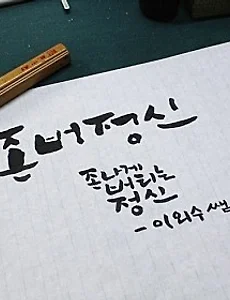 존버정신
존나게
버티는
정신
-이외수 쌤